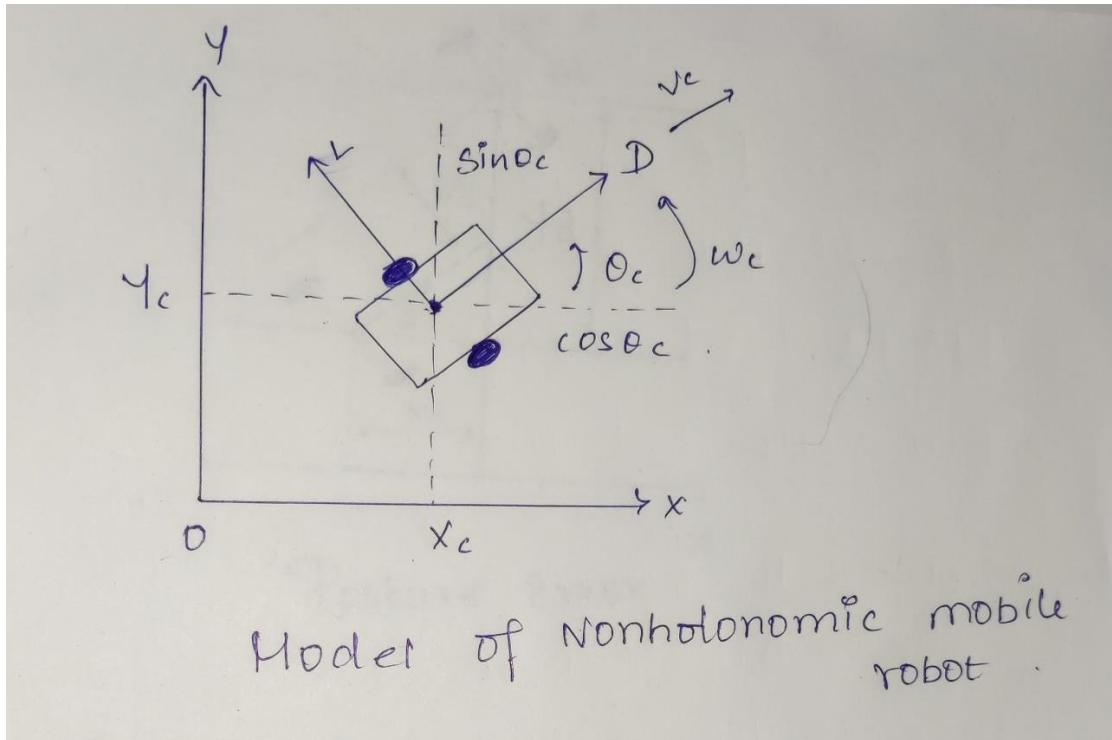 Y
Vc
L
sinθc
D
Yc
θc
ωc
cosθc .
O
Xc
X
Model of Nonholonomic mobile
robot .